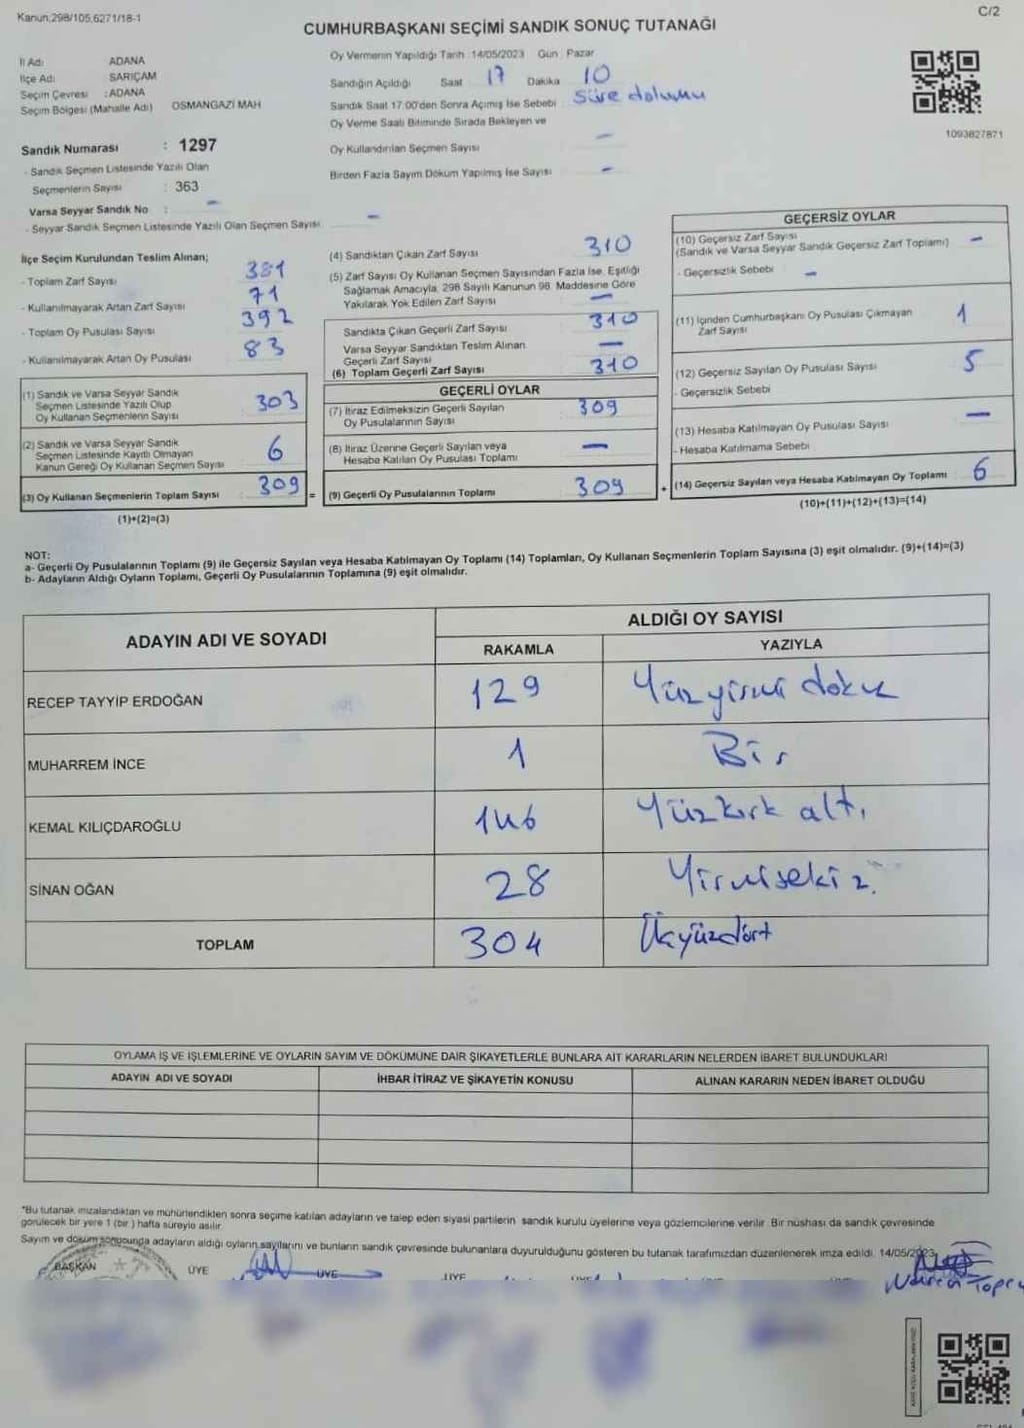 Kanun:298/105,6271/18-1
C/2
CUMHURBAŞKANI SEÇİMİ SANDIK SONUÇ TUTANAĞI
İl Adı ADANA
İlçe Adı SARIÇAM
Seçim Çevresi :ADANA
Seçim Bölgesi (Mahalle Adı) OSMANGAZİ MAH
Sandık Numarası : 1297
- Sandık Seçmen Listesinde Yazılı Olan
Seçmenlerin Sayısı : 363
Varsa Seyyar Sandık No : -
- Seyyar Sandık Seçmen Listesinde Yazılı Olan Seçmen Sayısı -
Oy Vermenin Yapıldığı Tarih :14/05/2023 Gün : Pazar
Sandığın Açıldığı Saat 17 Dakika 10
Sandık Saat 17.00'den Sonra Açımış İse Sebebi : süre dolumu
Oy Verme Saati Bitiminde Sırada Bekleyen ve
Oy Kullandırılan Seçmen Sayısı -
Birden Fazla Sayım Döküm Yapılmış İse Sayısı -
1093827871
İlçe Seçim Kurulundan Teslim Alınan;
- Toplam Zarf Sayısı 381
- Kullanılmayarak Artan Zarf Sayısı 71
- Toplam Oy Pusulası Sayısı 392
- Kullanılmayarak Artan Oy Pusulası 83
(1) Sandık ve Varsa Seyyar Sandık
Seçmen Listesinde Yazılı Olup
Oy Kullanan Seçmenlerin Sayısı 303
(2) Sandık ve Varsa Seyyar Sandık
Seçmen Listesinde Kayıtlı Olmayan
Kanun Gereği Oy Kullanan Seçmen Sayısı 6
(3) Oy Kullanan Seçmenlerin Toplam Sayısı 309 =
(1)+(2)=(3)
(4) Sandıktan Çıkan Zarf Sayısı 310
(5) Zarf Sayısı Oy Kullanan Seçmen Sayısından Fazla İse, Eşitliği
Sağlamak Amacıyla, 298 Sayılı Kanunun 98. Maddesine Göre
Yakılarak Yok Edilen Zarf Sayısı -
Sandıkta Çıkan Geçerli Zarf Sayısı 310
Varsa Seyyar Sandıktan Teslim Alınan
Geçerli Zarf Sayısı -
(6) Toplam Geçerli Zarf Sayısı 310
GEÇERLİ OYLAR
(7) İtiraz Edilmeksizin Geçerli Sayılan
Oy Pusulalarının Sayısı 309
(8) İtiraz Üzerine Geçerli Sayılan veya
Hesaba Katılan Oy Pusulası Toplamı -
(9) Geçerli Oy Pusulalarının Toplamı 309 +
GEÇERSİZ OYLAR
(10) Geçersiz Zarf Sayısı
(Sandık ve Varsa Seyyar Sandık Geçersiz Zarf Toplamı) -
- Geçersizlik Sebebi : -
(11) İçinden Cumhurbaşkanı Oy Pusulası Çıkmayan
Zarf Sayısı 1
(12) Geçersiz Sayılan Oy Pusulası Sayısı 5
- Geçersizlik Sebebi
(13) Hesaba Katılmayan Oy Pusulası Sayısı -
- Hesaba Katılmama Sebebi :
(14) Geçersiz Sayılan veya Hesaba Katılmayan Oy Toplamı 6
(10)+(11)+(12)+(13)=(14)
NOT:
a- Geçerli Oy Pusulalarının Toplamı (9) ile Geçersiz Sayılan veya Hesaba Katılmayan Oy Toplamı (14) Toplamları, Oy Kullanan Seçmenlerin Toplam Sayısına (3) eşit olmalıdır. (9)+(14)=(3)
b- Adayların Aldığı Oyların Toplamı, Geçerli Oy Pusulalarının Toplamına (9) eşit olmalıdır.
ADAYIN ADI VE SOYADI ALDIĞI OY SAYISI
RAKAMLA YAZIYLA
RECEP TAYYİP ERDOĞAN 129 Yüzyirmi dokuz
MUHARREM İNCE 1 Bir
KEMAL KILIÇDAROĞLU 146 Yüzkırk altı
SİNAN OĞAN 28 Yirmisekiz.
TOPLAM 304 Üçyüzdört
OYLAMA İŞ VE İŞLEMLERİNE VE OYLARIN SAYIM VE DÖKÜMÜNE DAİR ŞİKAYETLERLE BUNLARA AİT KARARLARIN NELERDEN İBARET BULUNDUKLARI
ADAYIN ADI VE SOYADI İHBAR İTİRAZ VE ŞİKAYETİN KONUSU ALINAN KARARIN NEDEN İBARET OLDUĞU
*Bu tutanak imzalandıktan ve mühürlendikten sonra seçime katılan adayların ve talep eden siyasi partilerin sandık kurulu üyelerine veya gözlemcilerine verilir. Bir nüshası da sandık çevresinde
görülecek bir yere 1 (bir ) hafta süreyle asılır.
Sayım ve döküm sonucunda adayların aldığı oyların sayılarını ve bunların sandık çevresinde bulunanlara duyurulduğunu gösteren bu tutanak tarafımızdan düzenlenerek imza edildi. 14/05/2023
BAŞKAN ÜYE ÜYE ÜYE